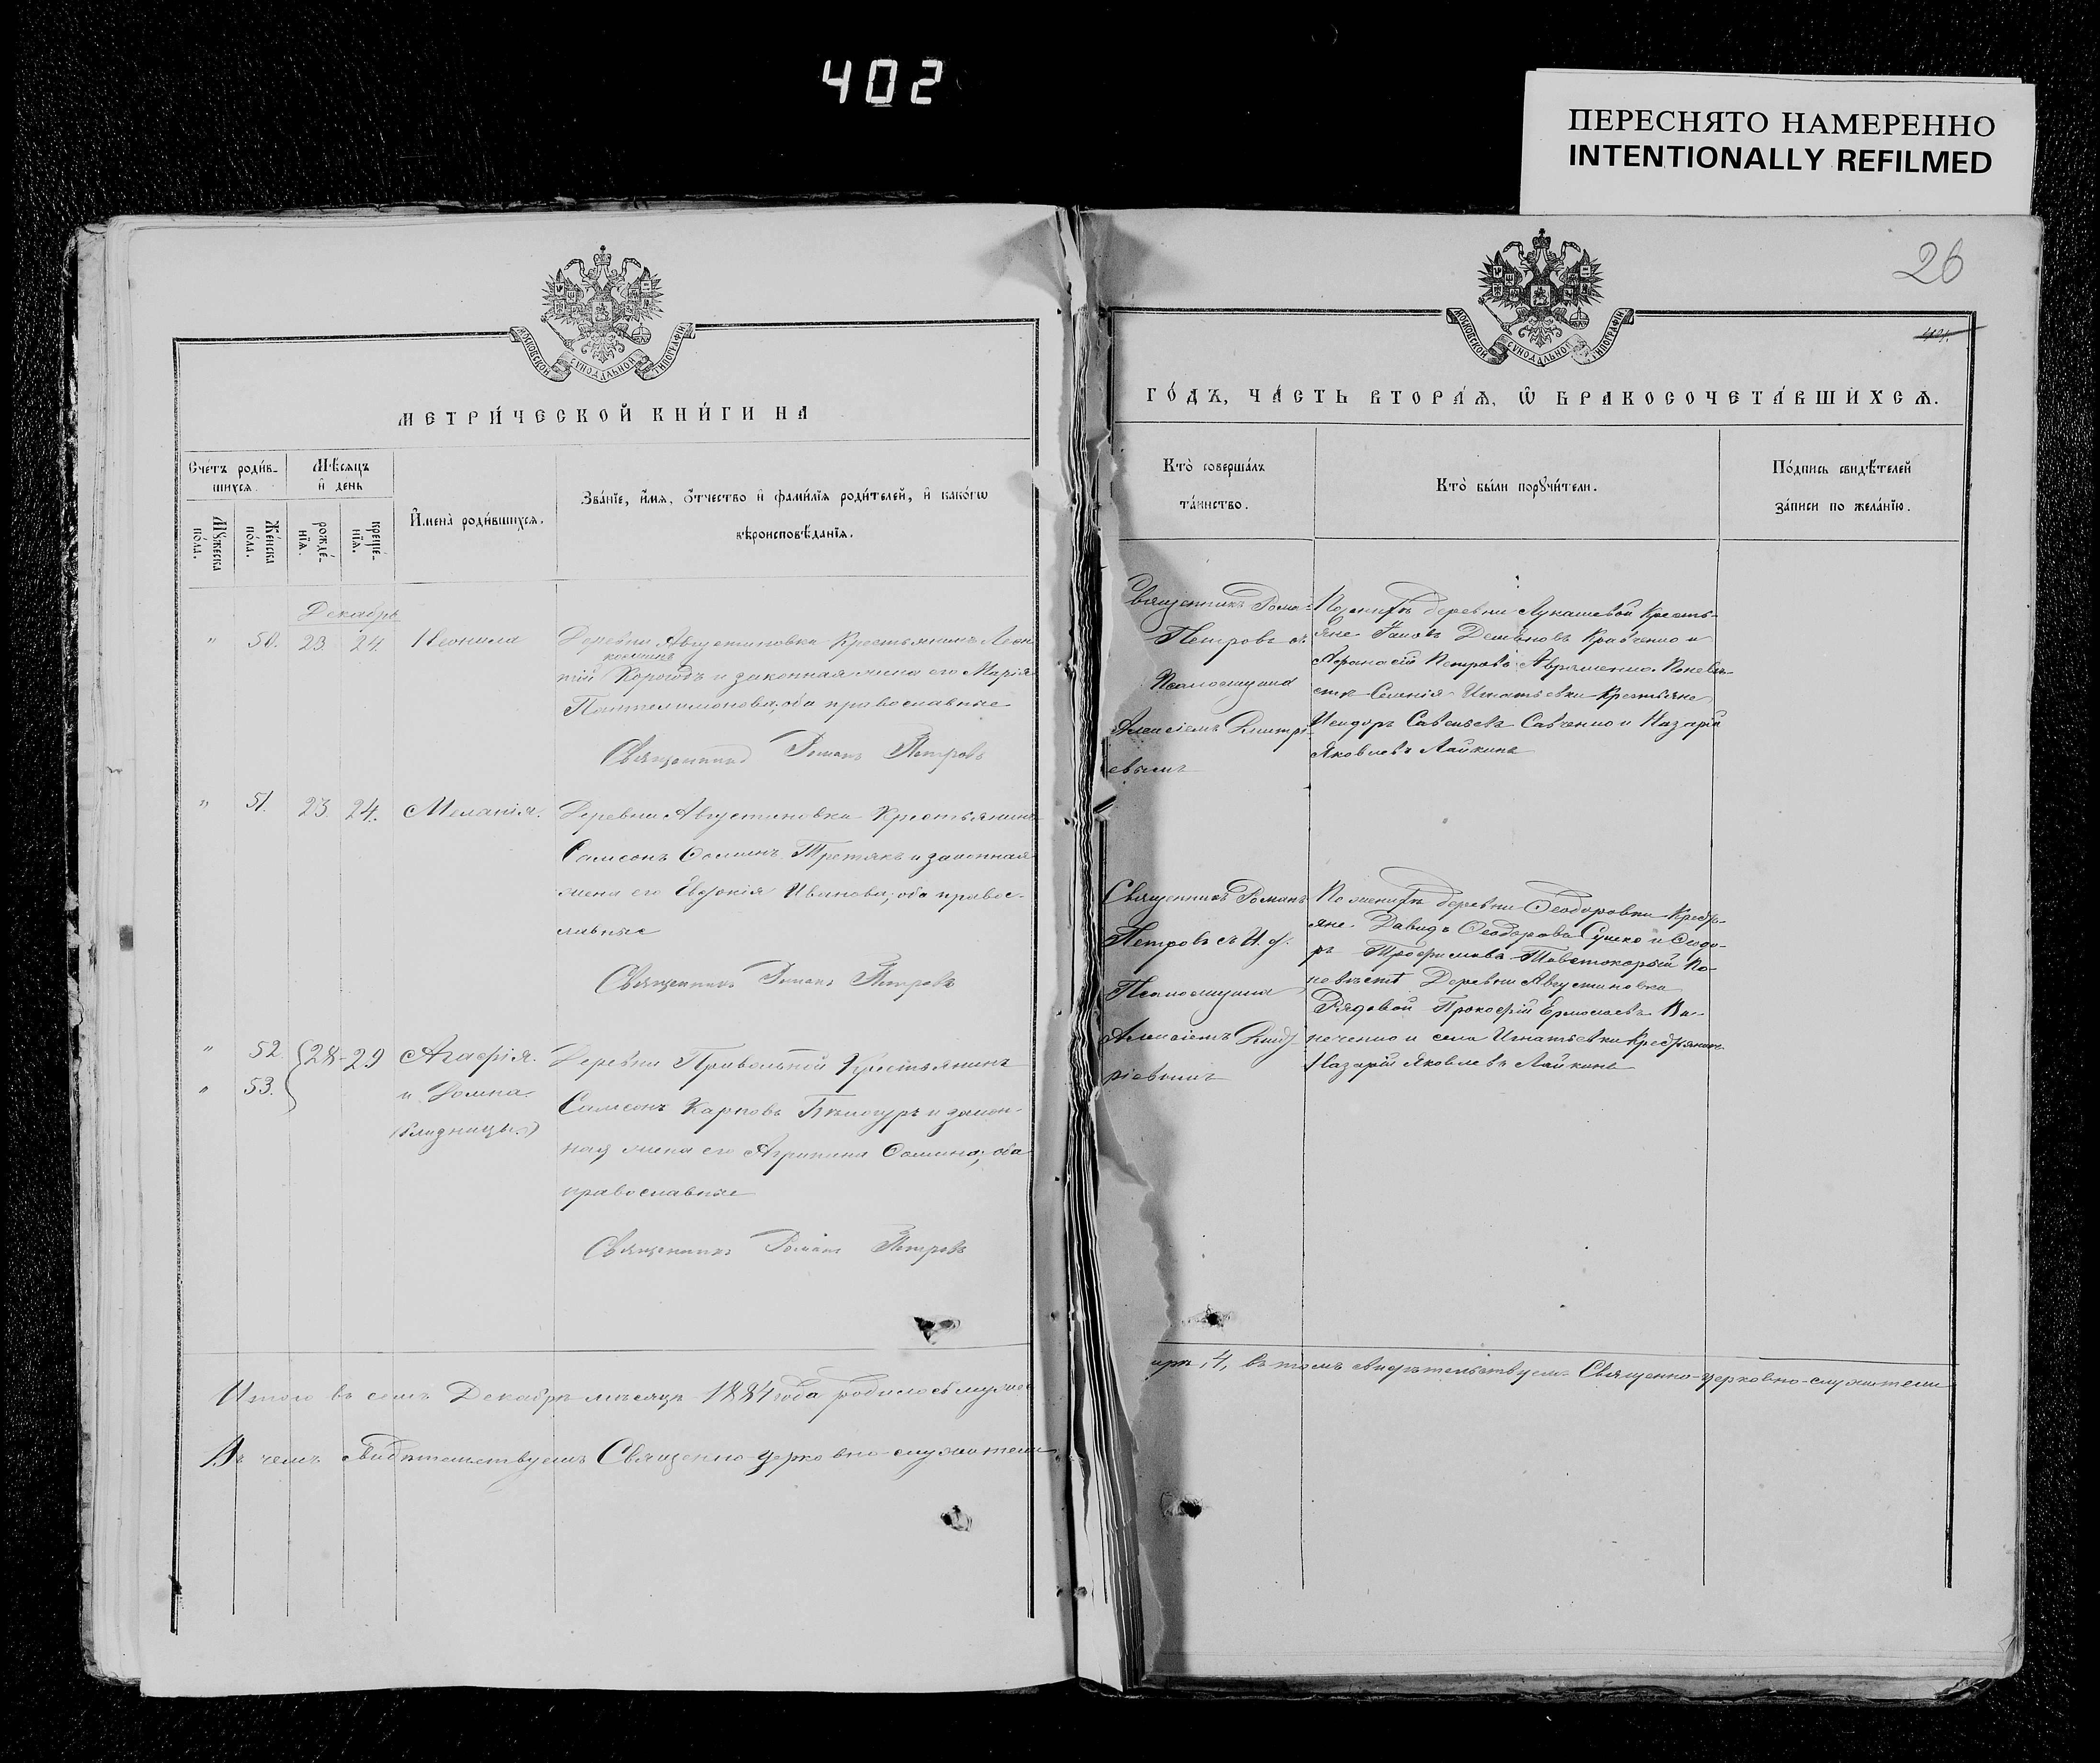 402
ПЕРЕСНЯТО НАМЕРЕННО
INTENTIONALLY REFILMED
МОСКОВСКОЙ СѴНОДАЛЬНОЙ ТИПОГРАФІИ
МЕТРИ́ЧЕСКОЙ КНИ́ГИ НА
Сче́тъ роди́в-
шихся.
Мѣ́сяцъ
и҆ день
Мꙋ́жеска
по́ла.
Же́нска
по́ла.
рожде́-
нїѧ.
креще́-
нїѧ.
И҆мена̀ роди́вшихся.
Зва́нїе, и҆́мѧ, ѻ҆́тчество и҆ фами́лїѧ роди́телей, и҆ како́гѡ
вѣроисповѣ́данїѧ.
Декабрь
" 50. 23. 24. Неонила
Деревни Августиновки Крестьянинъ Леон-
тій Короюдъ и законная жена его Марія
Пантелимонова; оба православные
Священникъ Романъ Петровъ
" 51. 23. 24. Меланія.
Деревни Августиновки Крестьянинъ
Самсонъ Ѳоминъ Третякъ и законная
жена его Евдокія Иванова; оба правос-
лавные
Священникъ Романъ Петровъ
" 52. 28 - 29 Агафія.
" 53. и Домна.
(близницы.)
Деревни Привольной Крестьянинъ
Самсонъ Карповъ и закон-
ная жена его Агрипина Ѳомина; оба
православные
Священникъ Романъ Петровъ
Итого въ семъ Декабрѣ мѣсяцѣ 1884 года родилось мужес
Въ чемъ свидѣтельствуемъ Священно-церковно-служители
26
МОСКОВСКОЙ СѴНОДАЛЬНОЙ ТИПОГРАФІИ
ГО́ДЪ, ЧА́СТЬ ВТОРА́Ѧ, Ѡ҆ БРАКОСОЧЕТА́ВШИХСѦ.
Кто̀ соверша́лъ
та́инство.
Кто̀ бы́ли порꙋчи́тели.
По́дпись свидѣ́телей
за́писи по жела́нїю.
Священникъ Рома-
Петровъ съ
Псаломщика
Алексіемъ Дмитрі-
евымъ
По женихѣ деревни Лукашевой Кресть-
яне Демьяновъ Кравченко и
Афанасій Петровъ Авраменко. По невѣ-
стѣ Игнатьевки Крестьяне
Исидоръ Савельевъ Савченко и Назарій
Яковлевъ Лайкинъ
Священникъ Романъ
Петровъ съ И. д.
Псаломщика
Алексіемъ Дмит-
ріевымъ
По женихѣ деревни Ѳеодоровки Крестъ-
яне Давидъ Ѳеодоровъ Сушко и Ѳедо-
ръ Трофимовъ Товстокорый По
невѣстѣ Деревни Августиновки
Рядовой Прокофій Ермолаевъ Ва-
ченко и села Игнатьевки Крестьянинъ
Назарій Яковлевъ Лайкинъ
4, въ томъ свидѣтельствуемъ Священно-церковно-служители